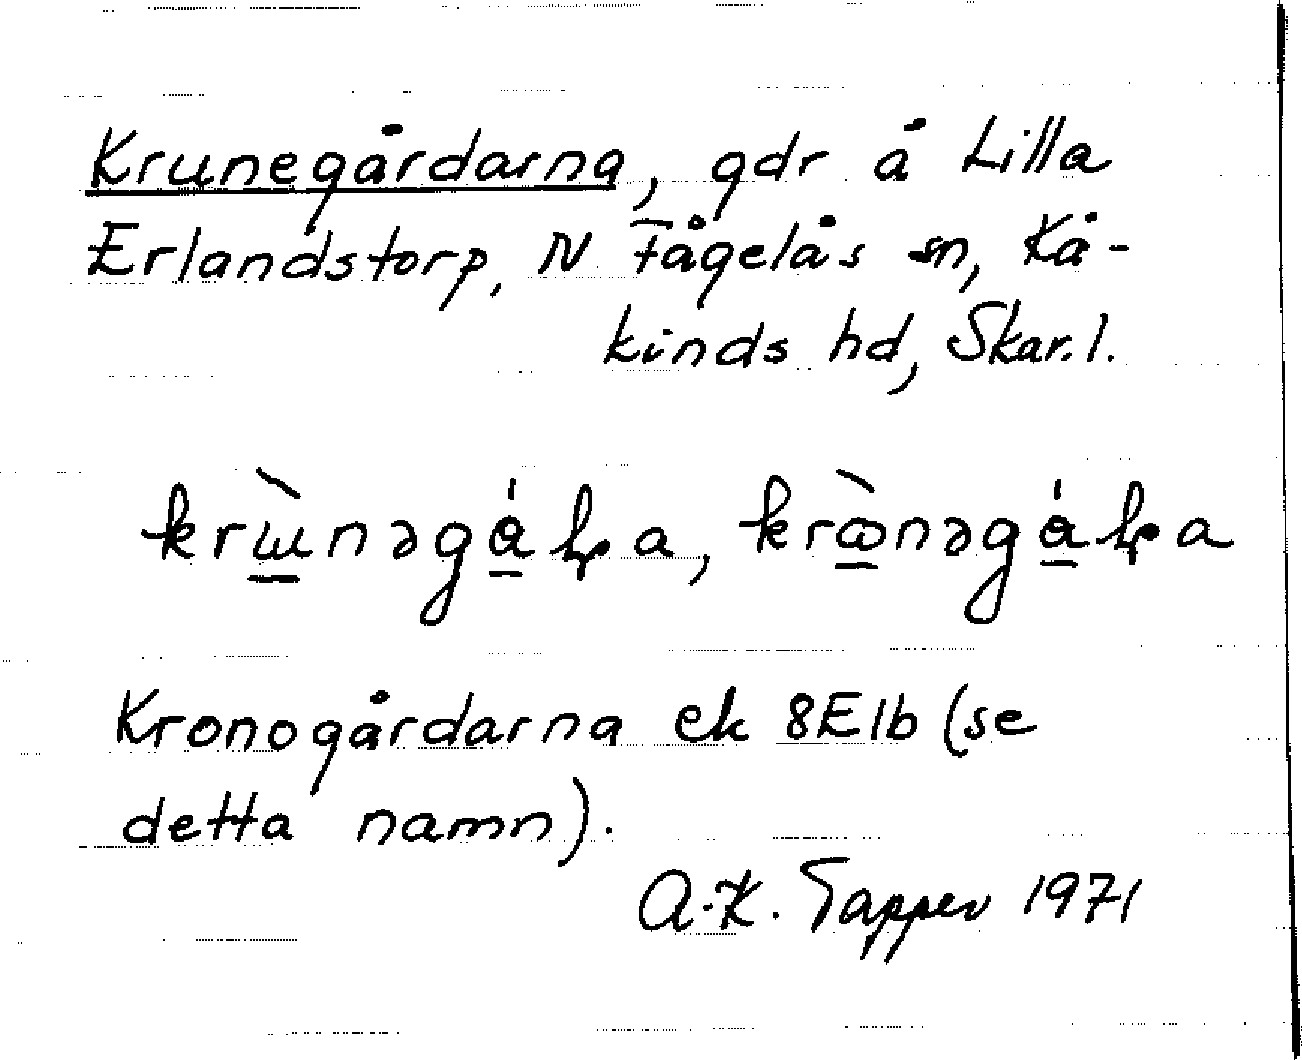 Krunegårdarna, gdr å Lilla
Erlandstorp, N Fågelås sn, Kå-
kinds hd, Skar. l.
Kronogårdarna ek 8E1b (se
detta namn).
A.-K. Tapper 1971